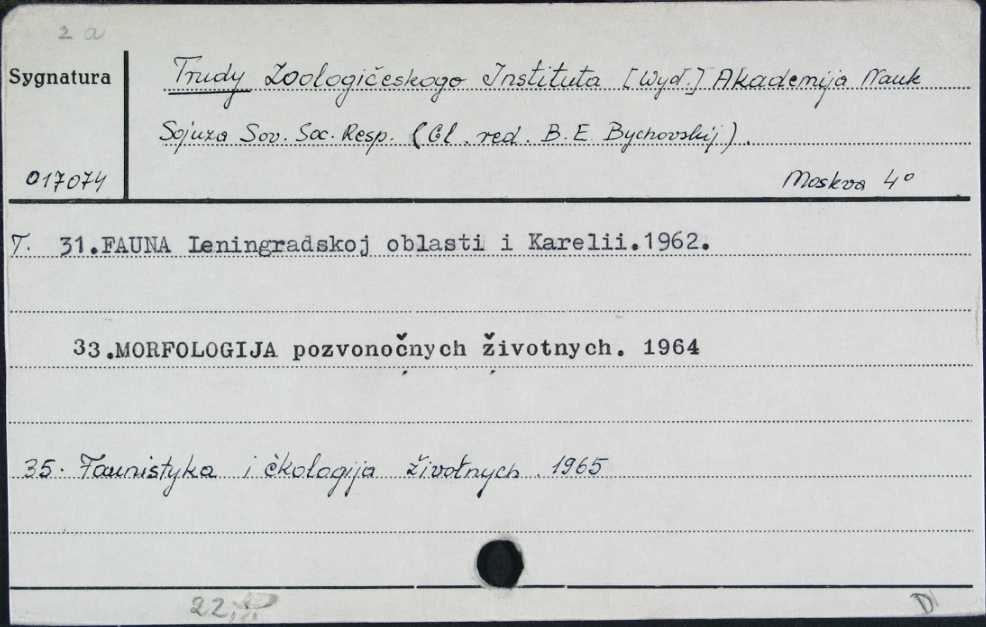 2 a
Sygnatura
Trudy Zoologičeskogo Instituta [Wyd.] Akademija Nauk
Sojuza Sov. Soc. Resp. (Gl. red. B. E. Bychovskij).
017074
Moskva 4°
T. 31.FAUNA Leningradskoj oblasti i Karelii.1962.
33.MORFOLOGIJA pozvonočnych životnych. 1964
35. Faunistyka i ėkologija životnych. 1965
22
D